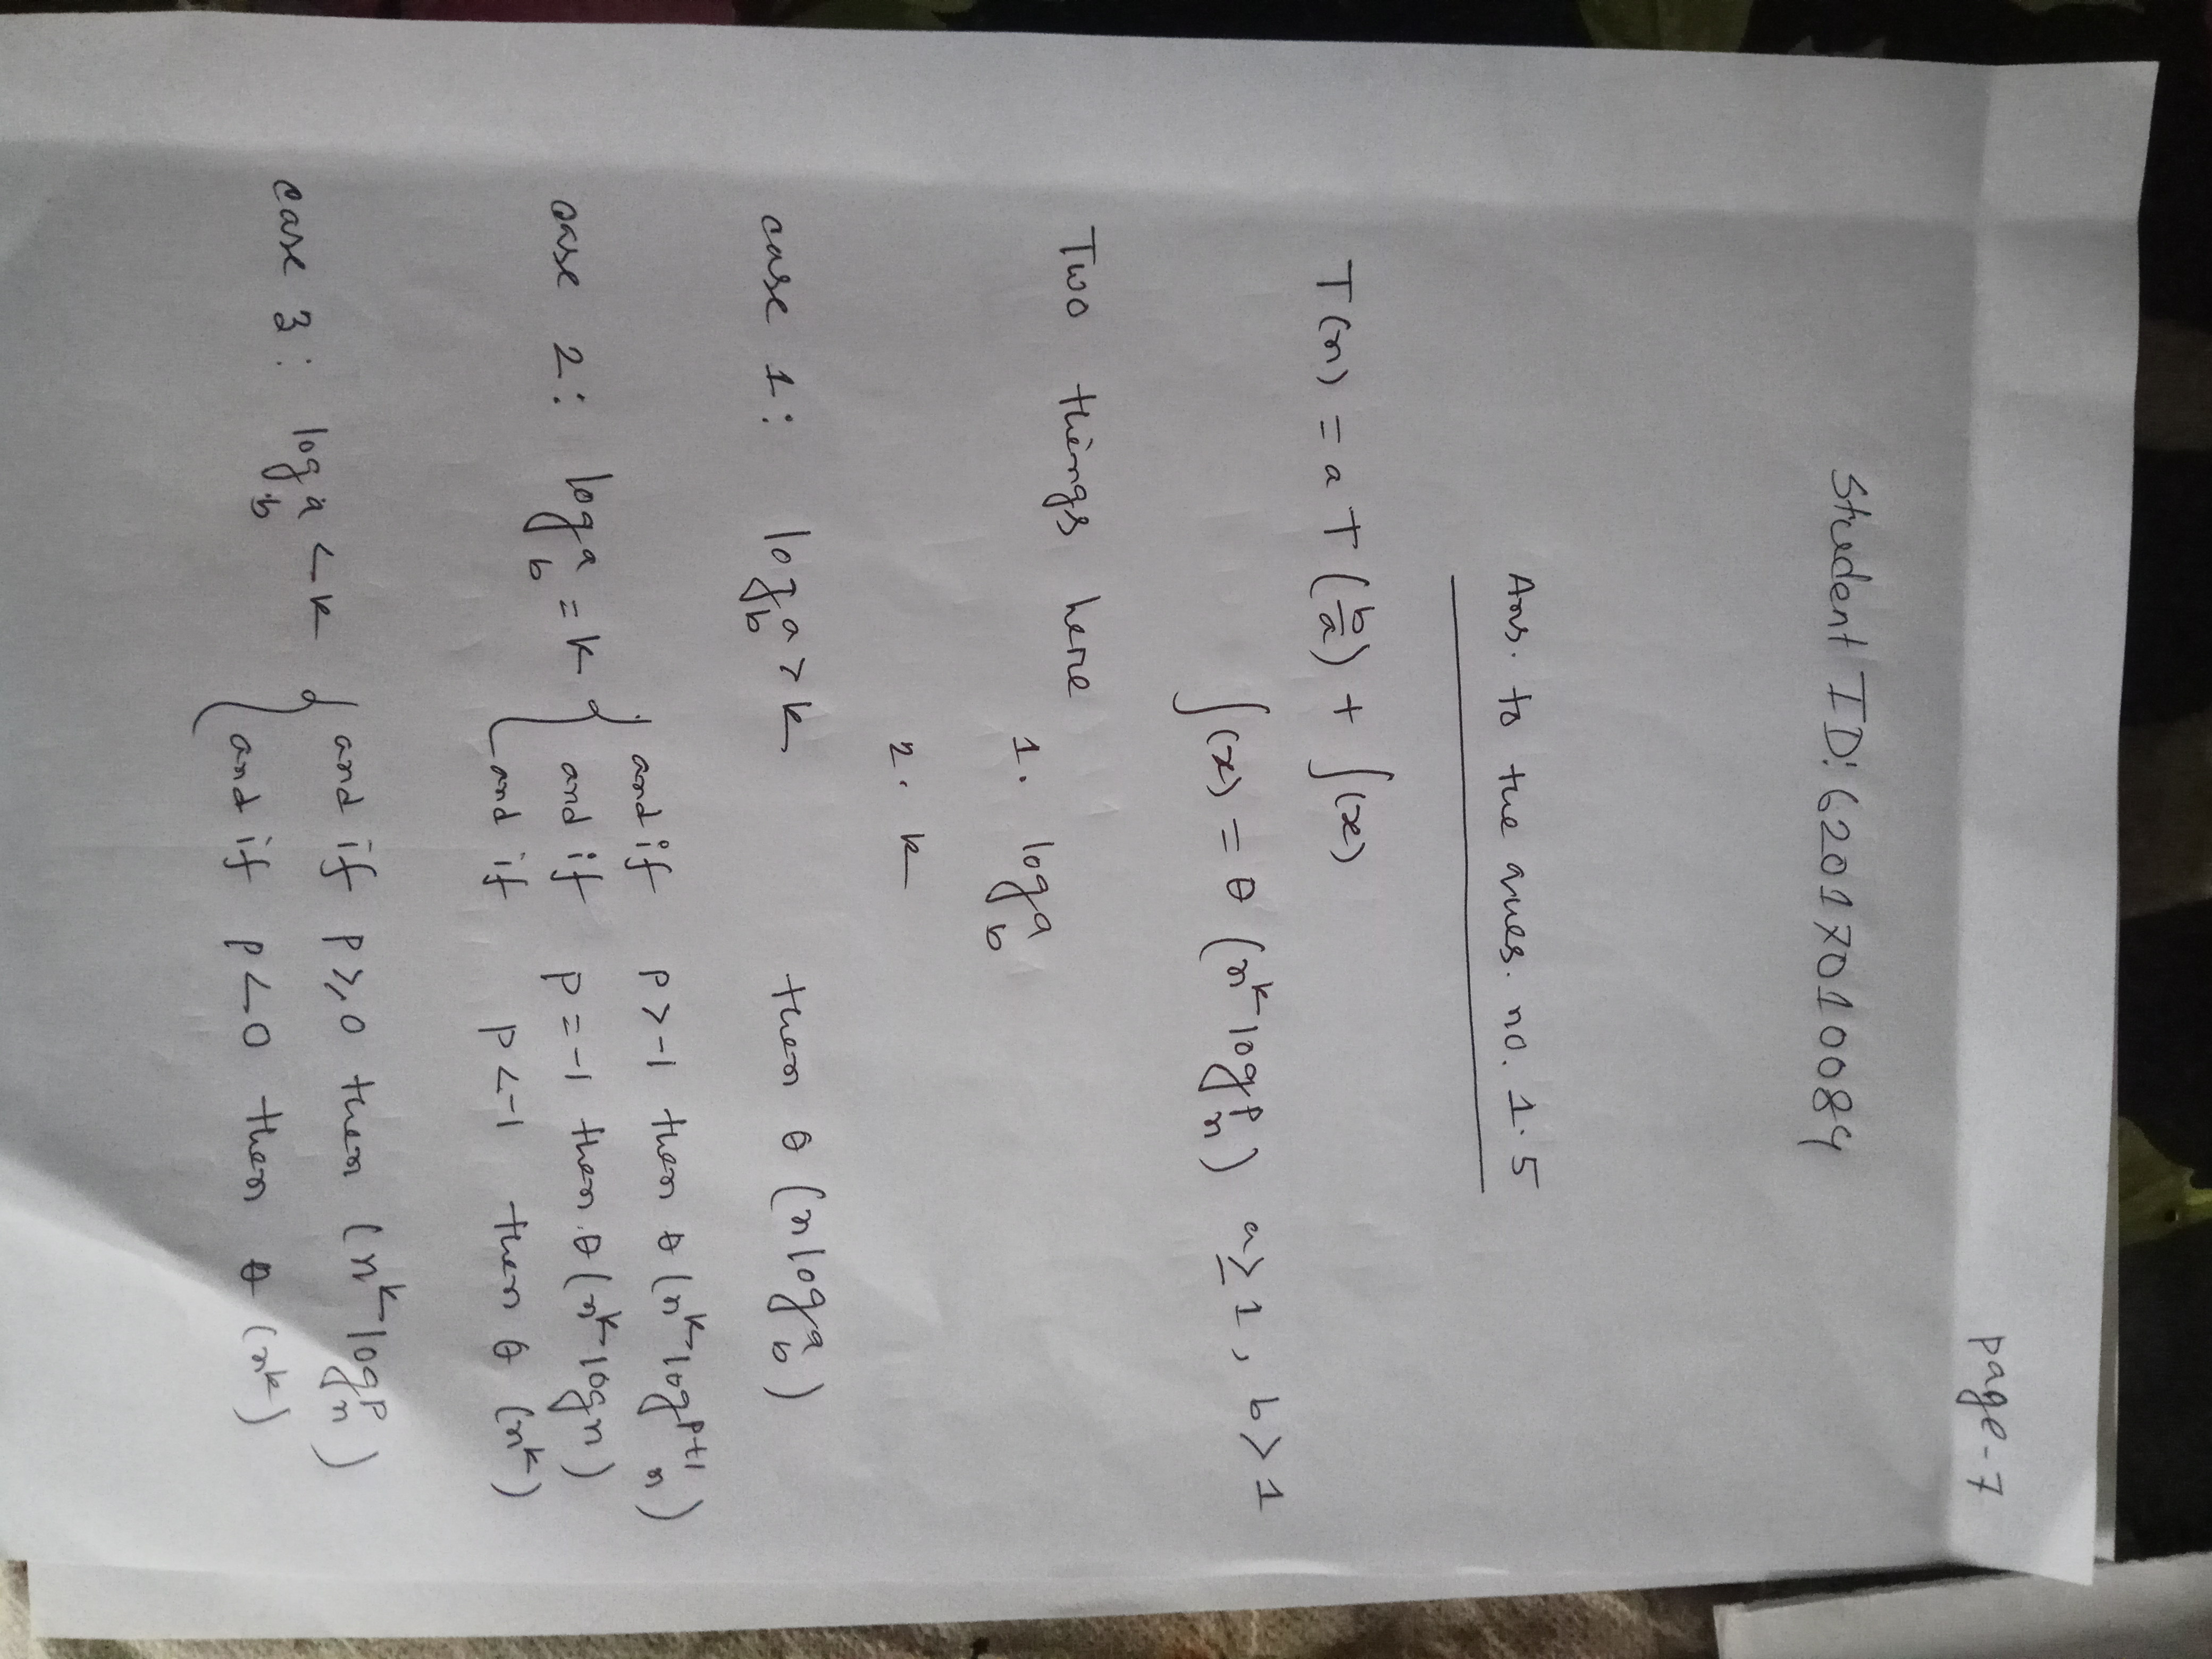 page-7
Student ID: 62017010084
Ans. to the ques. no. 1.5
T(n) = a T (b/a) + f(x)
f(x) = θ (n^k log^p n) a ≥ 1, b > 1
Two things here
1. log_b^a
2. k
case 1: log_b^a > k then θ (n log_b^a)
case 2: log_b^a = k { and if p > -1 then θ (n^k log^{p+1} n)
and if p = -1 then θ (n^k log n)
and if p < -1 then θ (n^k)
case 3: log_b^a < k { and if p ≥ 0 then (n^k log^p n)
and if p < 0 then θ (n^k)